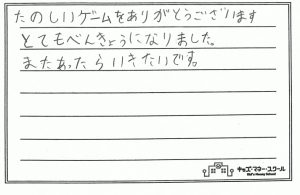 たのしいゲームをありがとうございます
とてもべんきょうになりました。
またあったらいきたいです。
キッズ・マネー・スクール
Kid's Money School